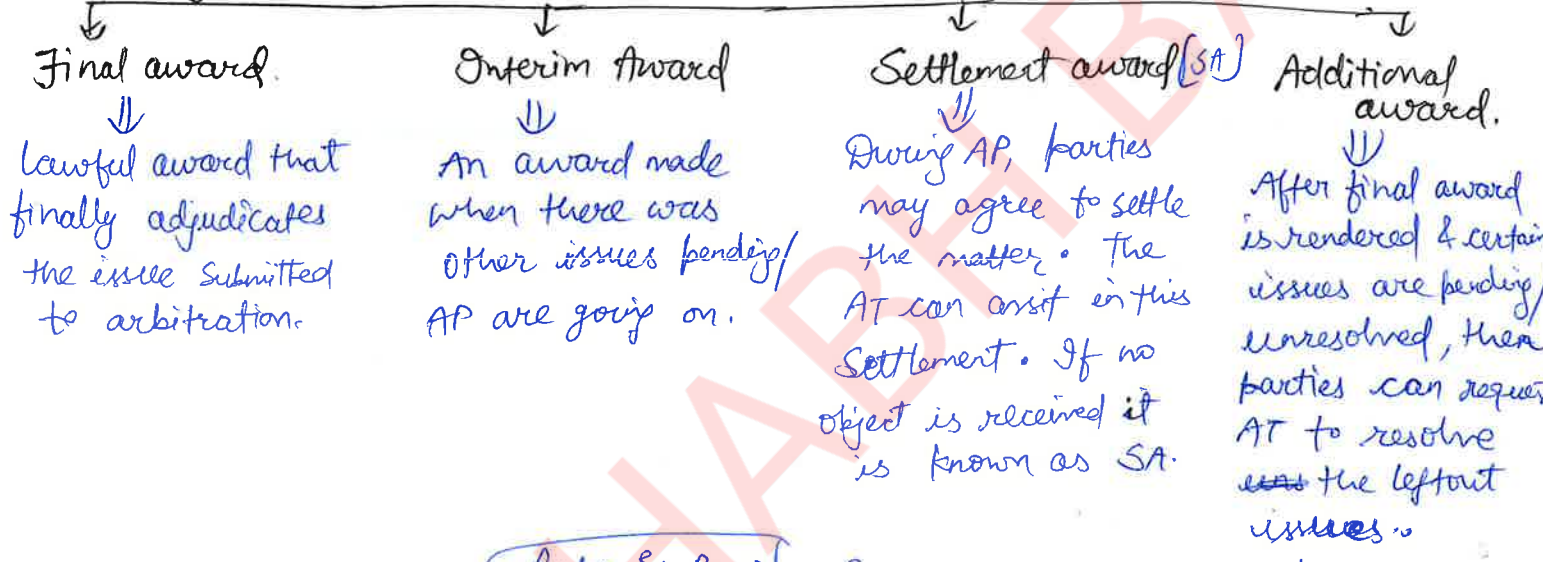 Final award.
Lawful award that
finally adjudicates
the issue submitted
to arbitration.
Interim Award
An award made
when there was
other issues pending/
AP are going on.
Settlement award [SA]
During AP, parties
may agree to settle
the matter. The
AT can assit in this
Settlement. If no
object is received it
is known as SA.
Additional
award.
After final award
is rendered & certain
issues are pending/
unresolved, then
parties can reques
AT to resolve
the leftout
issues..
HABH BA